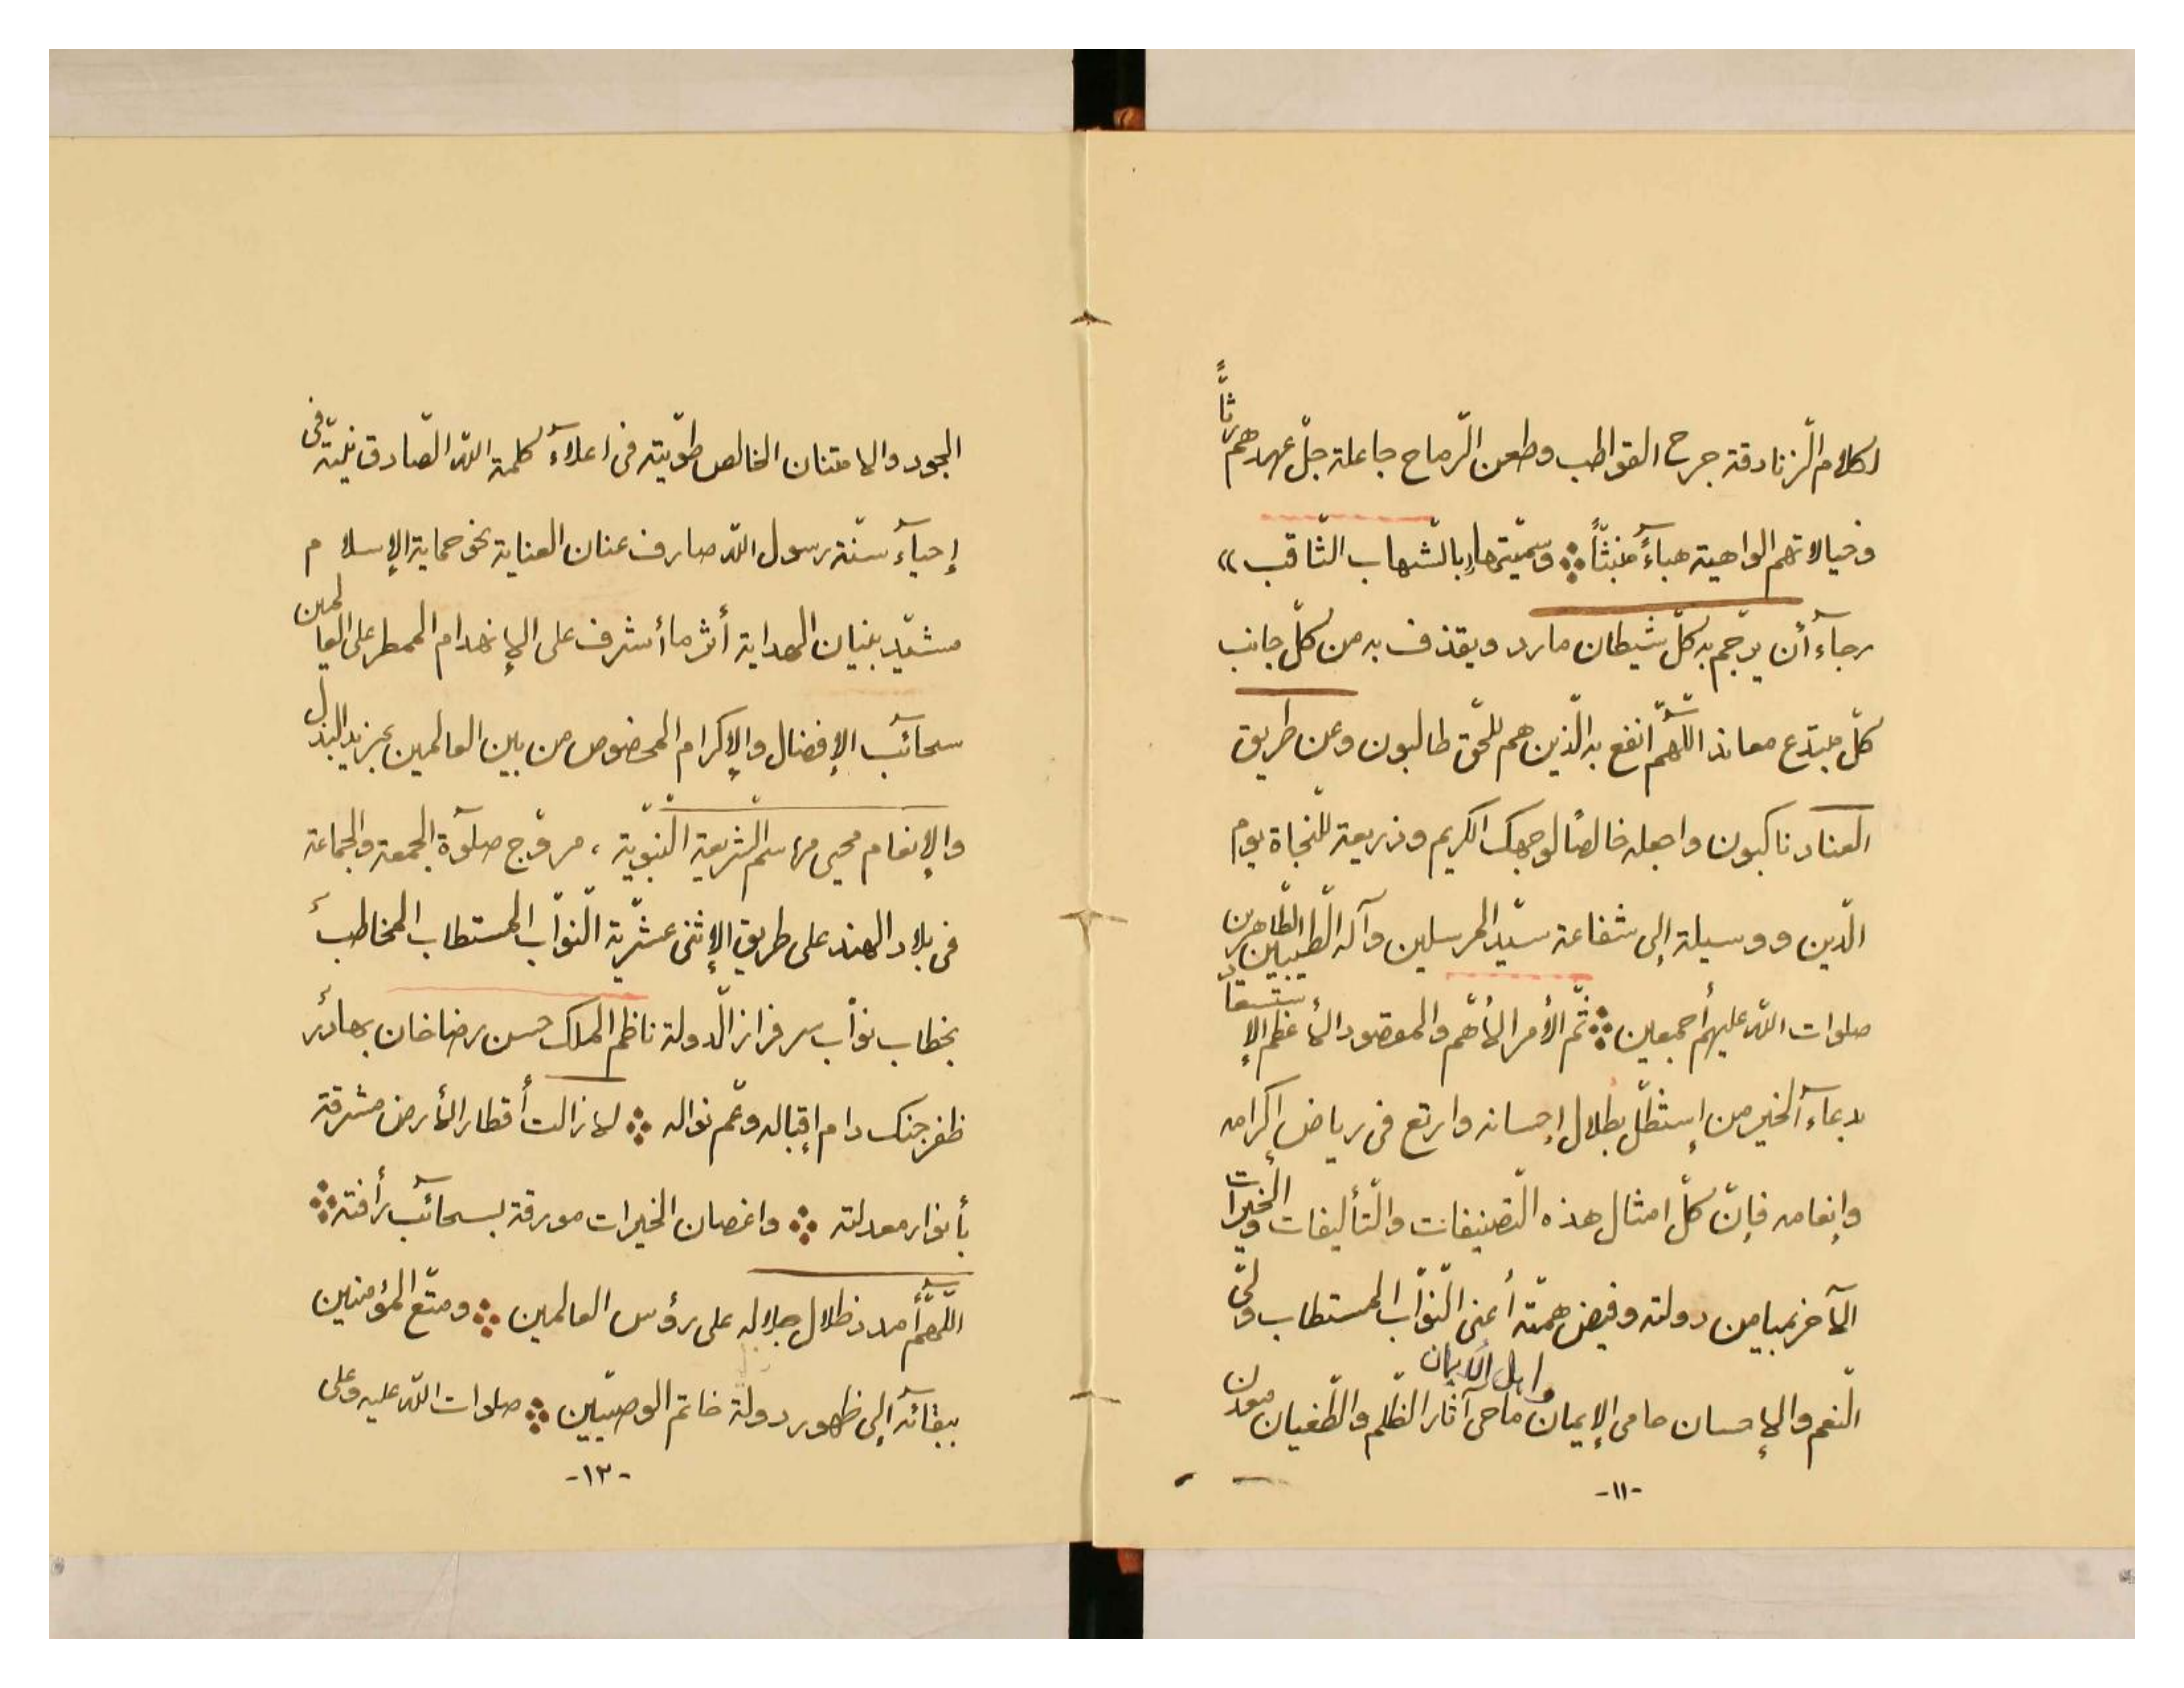 لكلام الزّنادقة جرح القواطب وطعن الرّماح جاعلة جلّ عهدهم رثاًّ
وخيالاتهم الواهية هباءً منبثّاً وسمّيتها بالشّهاب الثّاقب»
رجآء أن يرجّم به كلّ شيطان مارد ويقذف به من كلّ جانب
كلّ مبتدع معاند اللّهمّ انفع به الّذين هم للحّق طالبون وعن طريق
العناد ناكبون واجعله خالصًا لوجهك الكريم وذريعة للنّجاة يوم
الدّين ووسيلة إلى شفاعة سيّد المرسلين وآله الطّيّبين الطّاهرين
صلوات اللّه عليهم أجمعين ثمّ الأمر الأهمّ والمقصود الأعظم الإستسقآد
بدعآء الخير من إستظلّ بظلال إحسانه وارتع في رياض إكرامه
وإنعامه فإنّ كلّ امثال هذه التّصنيفات والتّأليفات والخيرات
الآخر بميامن دولته وفيض همّته أعنى النّوّاب المستطاب ولىّ
النّعم والإحسان حامى الإيمان واهل الايمان ماحى آثار الظّلم والطّغيان معدن
-١١-
الجود والامتنان الخالص طوّيته فى اعلآء كلمة اللّه الصّادق نيّته فى
إحيآء سنّة رسول اللّه صارف عنان العناية نحو حماية الإسلام
مشيّد بنيان الهداية أثر ما أشرف على الإنهدام الممطر على العالمين
سحآئب الإفضال والإكرام المخصوص من بين العالمين بمزيد البذل
والإنعام محيى مراسم الشّريعة النّبويّة ، مروّج صلوٓة الجمعة والجماعة
فى بلاد الهند على طريق الإثنى عشّرية النّوّاب المستطاب المخاطب
بخطاب نوّاب سرفراز الدّولة ناظم الملك حسن رضا خان بهادر
ظفر جنك دام إقباله وعمّ نواله لا زالت أقطار الأرض مشرقة
بأنوار معدلته واغصان الخيرات مورقة بسحآئب رأفته
اللّهمّ أمدد ظلال جلاله على رؤس العالمين ومتّع المؤمنين
ببقآئه إلى ظهور دولة خاتم الوصيّين صلوات اللّه عليه وعلى
-١٣-